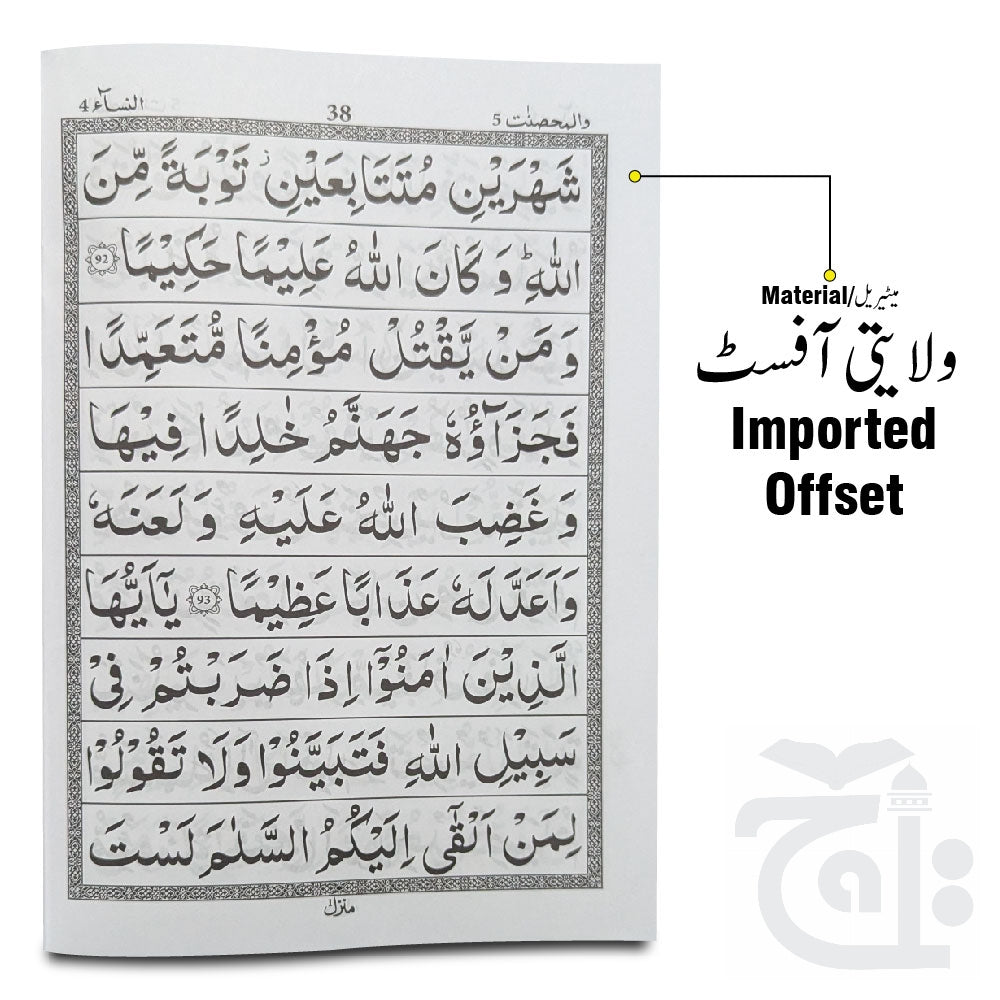 النساۤء 4
38
والمحصنٰت 5
شَهْرَيْنِ مُتَتَابِعَيْنِ ز تَوْبَةً مِّنَ
اللّٰهِ ؕ وَ كَانَ اللّٰهُ عَلِيْمًا حَكِيْمًا 92
وَ مَنْ يَّقْتُلْ مُؤْمِنًا مُّتَعَمِّدًا
فَجَزَآؤُهٗ جَهَنَّمُ خٰلِدًا فِيْهَا
وَ غَضِبَ اللّٰهُ عَلَيْهِ وَ لَعَنَهٗ
وَ اَعَدَّ لَهٗ عَذَابًا عَظِيْمًا 93 يٰۤاَيُّهَا
الَّذِيْنَ اٰمَنُوْۤا اِذَا ضَرَبْتُمْ فِىْ
سَبِيْلِ اللّٰهِ فَتَبَيَّنُوْا وَلَا تَقُوْلُوْا
لِمَنْ اَلْقٰٓى اِلَيْكُمُ السَّلٰمَ لَسْتَ
منزل
Material/میٹیریل
ولایتی آفسٹ
Imported
Offset